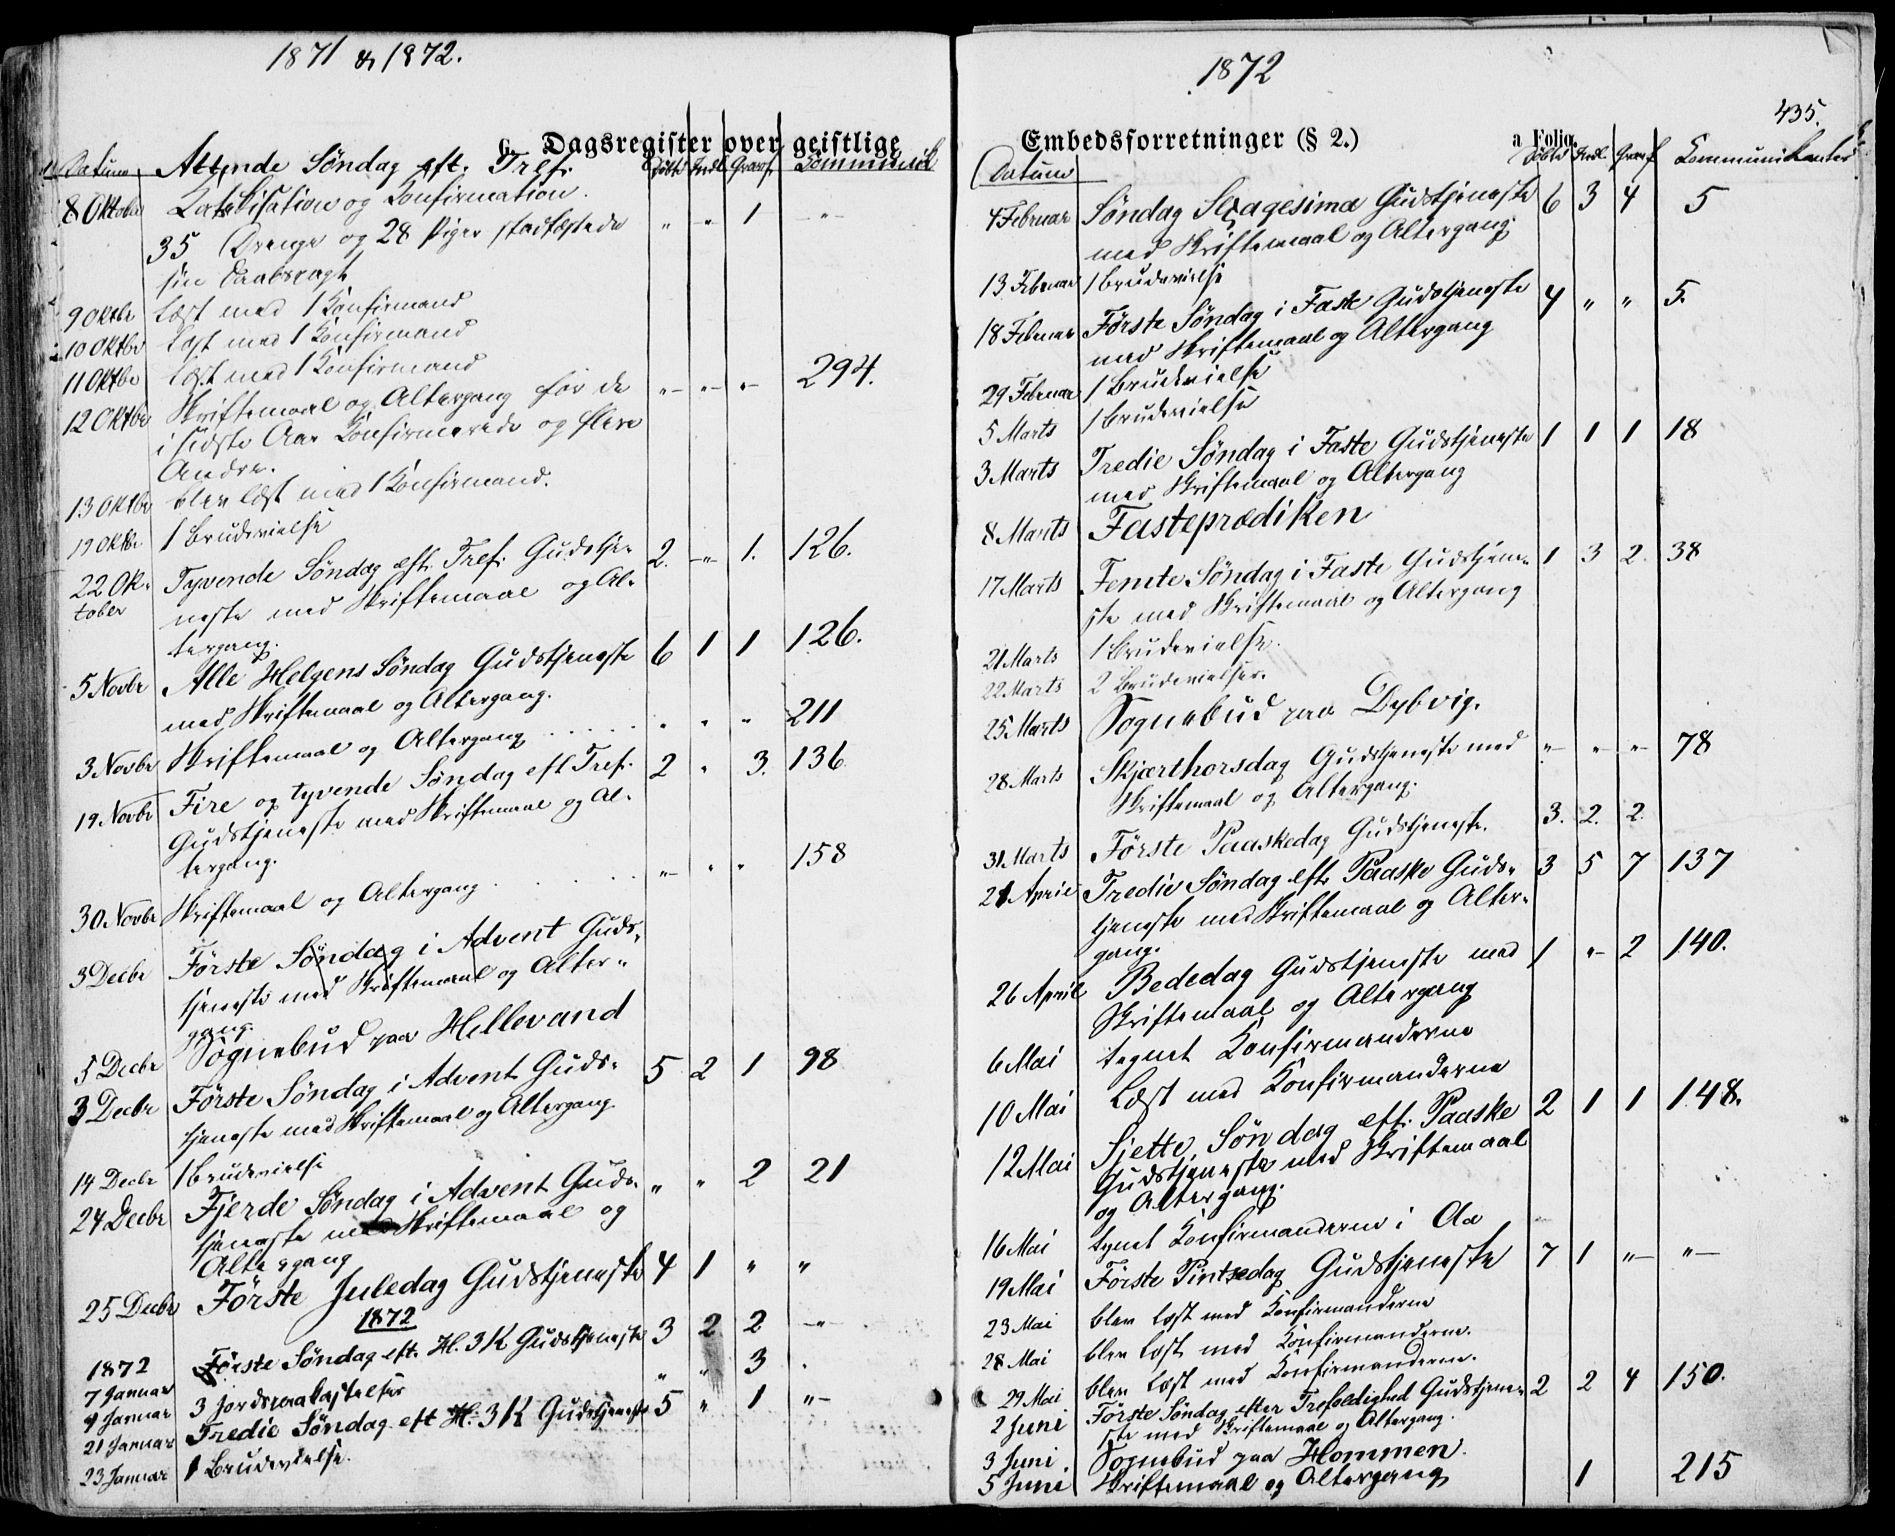 1871 & 1872.
G. Dagsregister over geistlige
Datum Attende Søndag eft. Tref. Døbte Indl. Graaf. Kommunik
8 Oktober Katekisation og Konfirmation.
35 Drenge og 28 Piger stadfæstede " " 1 "
sin Daabspagt
9 Oktbr Læst med 1 Konfirmand
10 Oktbr Læst med 1 Konfirmand
11 Oktbr Læst med 1 Konfirmand
12 Oktbr Skriftemaal og Altergang for de " " " 294.
i sidste Aar Konfirmerede og flere
Andre.
13 Oktbr blev læst med 1 Konfirmand.
19 Oktbr 1 Brudevielse
22 Ok- Tyvende Søndag eft. Tref. Gudstje- 2. " 1. 126.
tober neste med Skriftemaal og Al-
tergang.
5 Novbr Alle Helgens Søndag Gudstjeneste 6 1 1 126.
med Skriftemaal og Altergang.
3 Novbr Skriftemaal og Altergang . . . . . " " " 211
19 Novbr Fire og tyvende Søndag eft Tref. 2 " 3. 136
Gudstjeneste med Skriftemaal og Al-
tergang.
30 Novbr Skriftemaal og Altergang . . . . . " " " 158
3 Decbr Förste Söndag i Advent Guds-
tjeneste med Skriftemaal og Alter-
gang.
5 Decbr Sognebud paa Hellevand
3 Decbr Förste Søndag i Advent Guds- 5 2 1 98
tjeneste med Skriftemaal og Altergang
14 Decbr 1 Brudevielse
24 Decbr Fjerde Søndag i Advent Guds- " " 2 21
tjeneste med Skriftemaal og
Altergang
25 Decbr Förste Juledag Gudstjeneste 4 1 " "
1872
1872
7 Januar Förste Søndag eft. H. 3 K Gudstjeneste 3 2 2 "
4 Januar 3 Jordspaakastelser " " 3 .
21 Januar Tredie Søndag eft H. 3 K Gudstjeneste 5 " 1 "
23 Januar 1 Brudevielse.
1872
435.
Embedsforretninger (§ 2.) a Folio.
Datum Døbte Indl. Graaf. Kommunikanter
4 Februar Søndag Sexagesima Gudstjeneste 6 3 4 5
med Skriftemaal og Altergang
13 Februar 1 Brudevielse
18 Februar Förste Søndag i Faste Gudstjeneste 4 " " 5.
med Skriftemaal og Altergang
29 Februar 1 Brudevielse
5 Marts 1 Brudevielse
3 Marts Tredie Søndag i Faste Gudstjeneste 1 1 1 18
med Skriftemaal og Altergang
8 Marts Fasteprædiken
17 Marts Femte Søndag i Faste Gudstjene- 1 3 2. 38
ste med Skriftemaal og Altergang
21 Marts 1 Brudevielse.
22 Marts 2 Brudevielser.
25 Marts Sognebud paa Dybvig.
28 Marts Skjærthorsdag Gudstjeneste med " " " 78
Skriftemaal og Altergang.
31 Marts Förste Paaskedag Gudstjeneste. 3. 2. 2.
21 April Tredie Søndag eft. Paaske Guds- 3 5 7 137
tjeneste med Skriftemaal og Alter-
gang.
26 April Bededag Gudstjeneste med 1 " 2 140.
Skriftemaal og Altergang
6 Mai tegnet Konfirmanderne
10 Mai Læst med Konfirmanderne
12 Mai Sjette Søndag eft. Paaske 2 1 1 148.
Gudstjeneste med Skriftemaal
og Altergang.
16 Mai tegnet Konfirmanderne i Aa
19 Mai Förste Pintsedag Gudstjeneste 7 1 " "
23 Mai blev læst med Konfirmanderne
28 Mai blev læst med Konfirmanderne.
29 Mai blev læst med Konfirmanderne.
2 Juni Förste Søndag efter Trefoldighed Gudstjene- 2 2 4 150.
ste med Skriftemaal og Altergang.
3 Juni Sognebud paa Hommen.
5 Juni Skriftemaal og Altergang 1 215